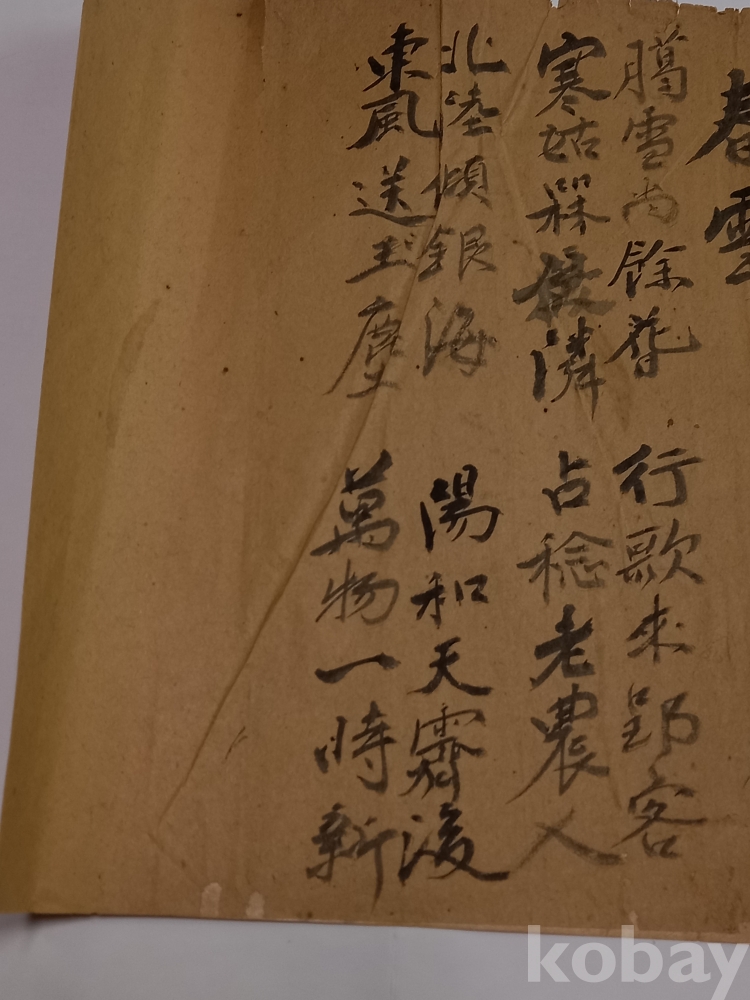 春雪
雪尚餘 行歌來郢客
寒姑 占稔老農人
北陸傾銀海 陽和天霽後
東風送玉塵 萬物一時新
kobay